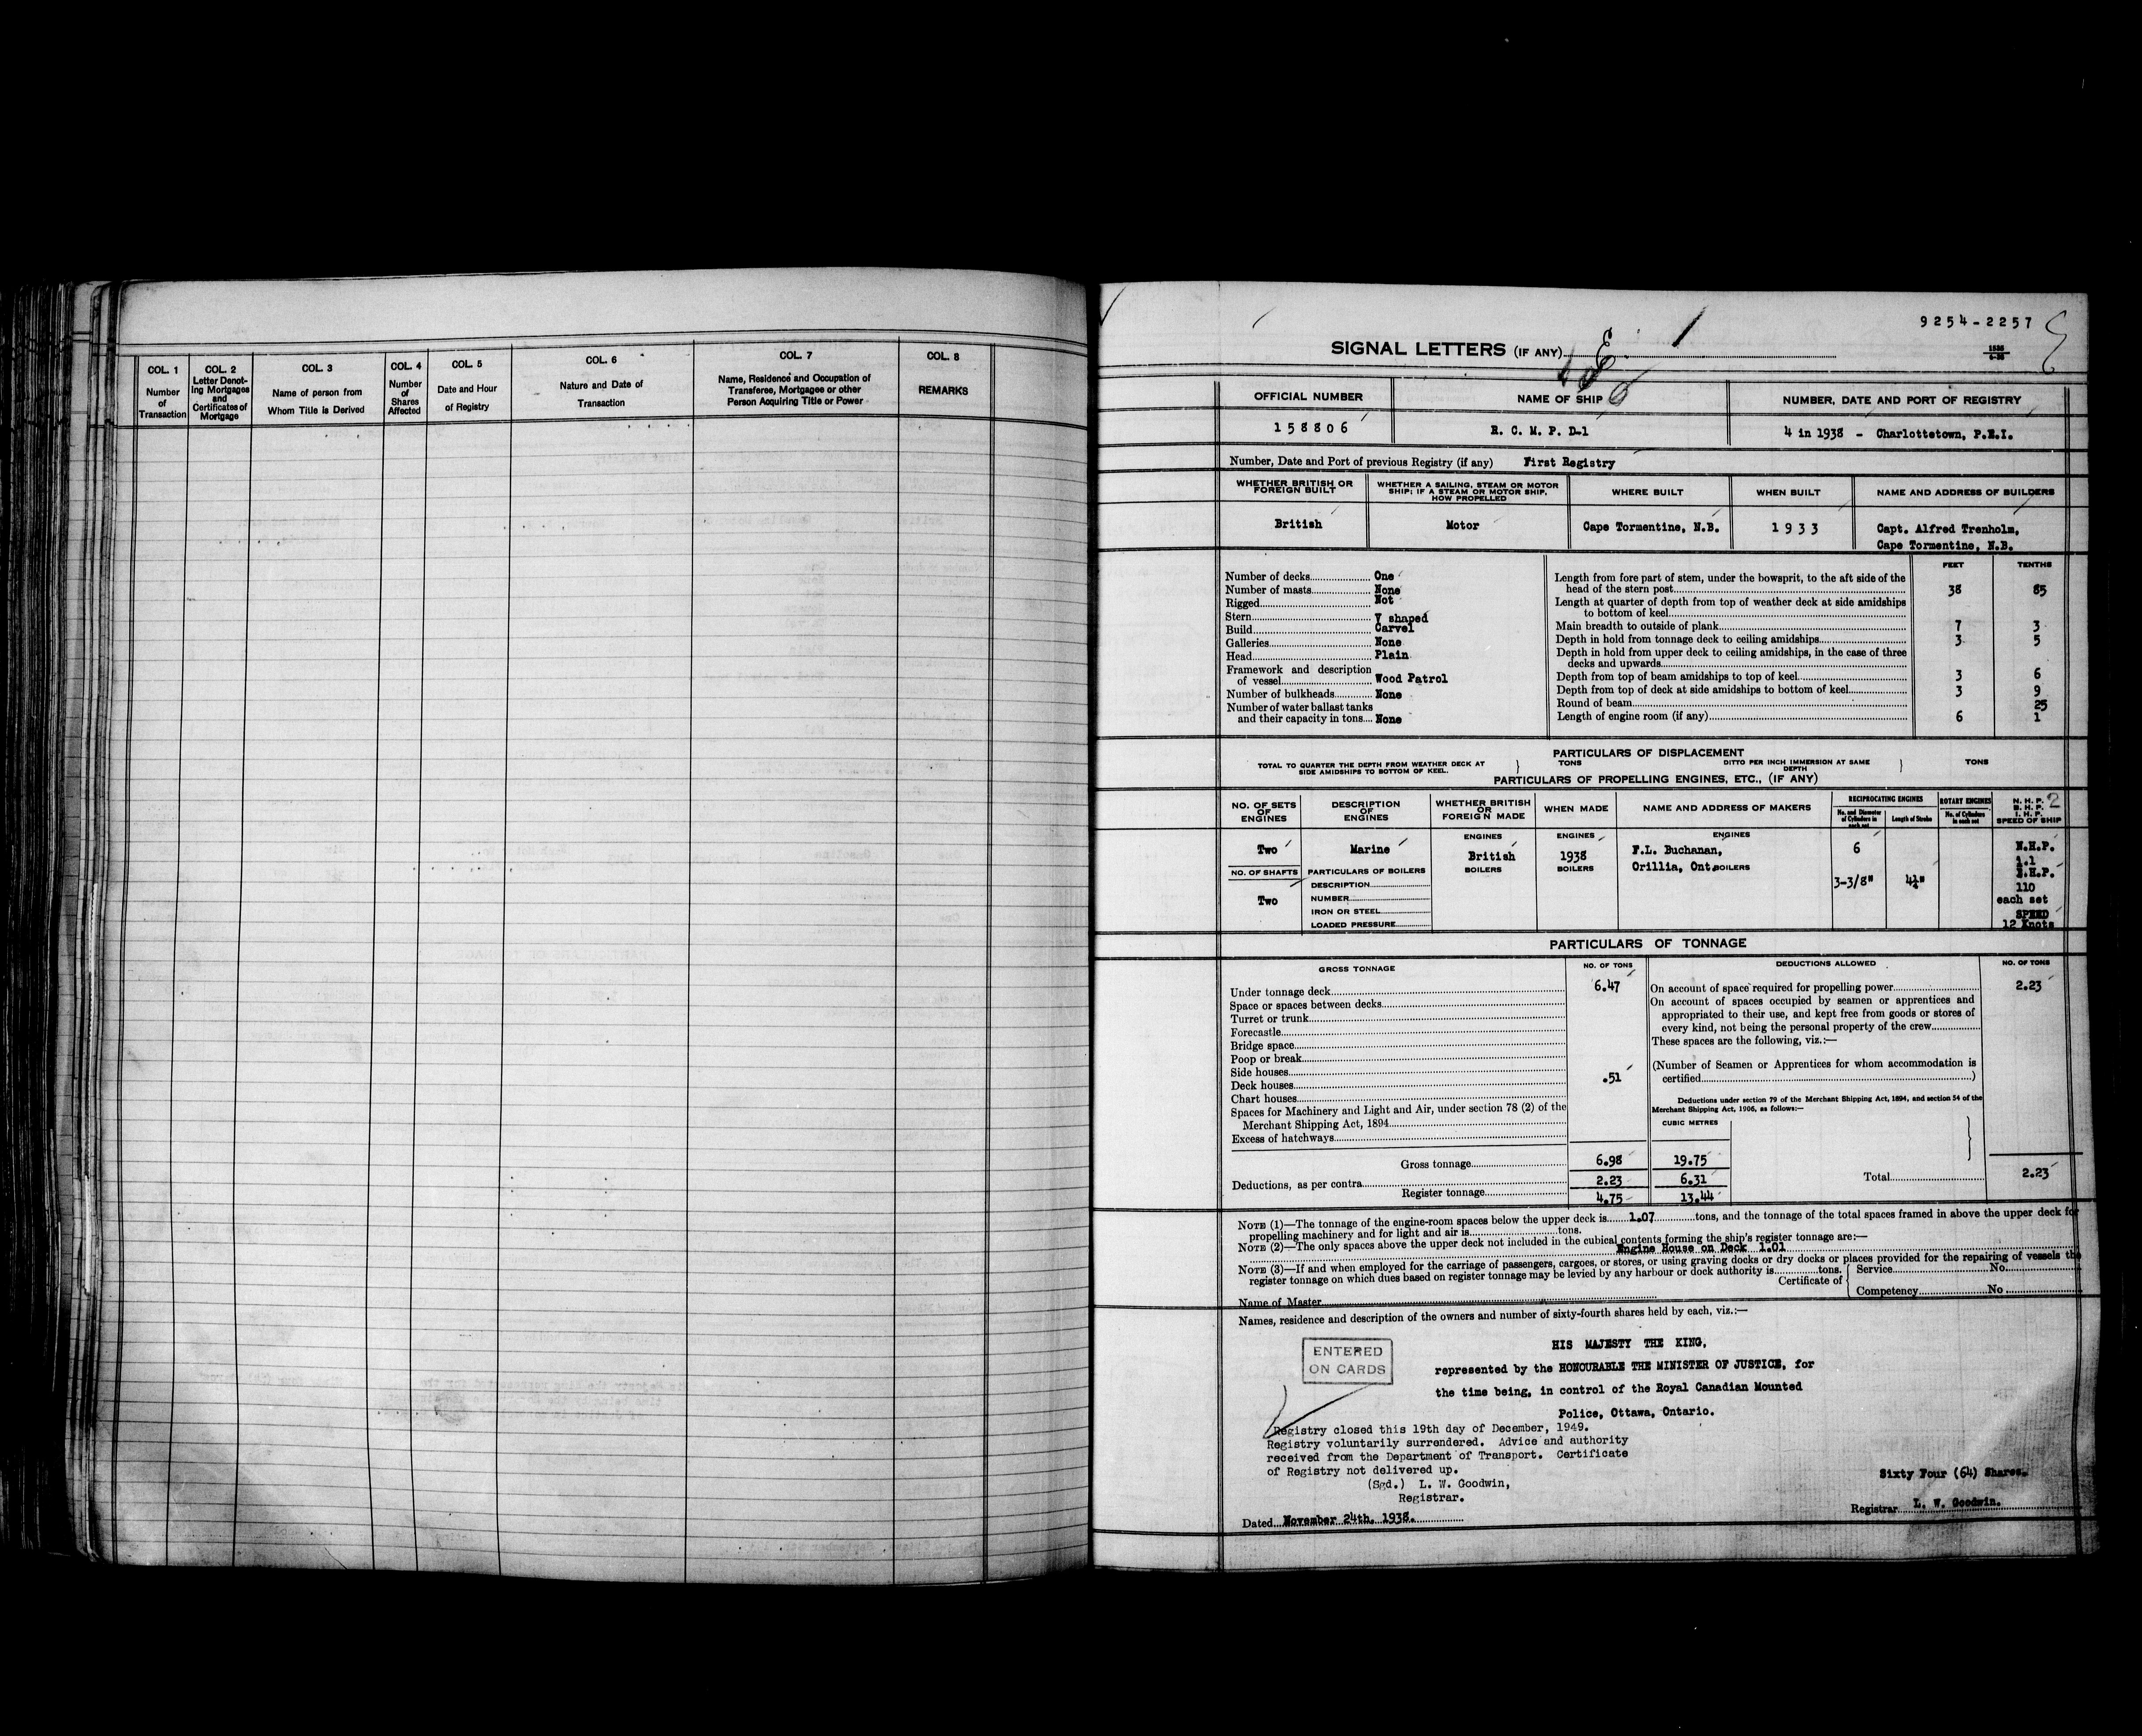 COL. 1
Number
of
Transaction
COL. 2
Letter Denot-
ing Mortgages
and
Certificates of
Mortgage
COL. 3
Name of person from
Whom Title is Derived
COL. 4
Number
of
Shares
Affected
COL. 5
Date and Hour
of Registry
COL. 6
Nature and Date of
Transaction
COL. 7
Name, Residence and Occupation of
Transferee, Mortgagee or other
Person Acquiring Title or Power
COL. 8
REMARKS
9254-2257
SIGNAL LETTERS (IF ANY)
OFFICIAL NUMBER
NAME OF SHIP
NUMBER, DATE AND PORT OF REGISTRY
158806
R. C. M. P. D-1
4 in 1938 - Charlottetown, P.E.I.
Number, Date and Port of previous Registry (if any) First Registry
WHETHER BRITISH OR
FOREIGN BUILT
WHETHER A SAILING, STEAM OR MOTOR
SHIP; IF A STEAM OR MOTOR SHIP,
HOW PROPELLED
WHERE BUILT
WHEN BUILT
NAME AND ADDRESS OF BUILDERS
British
Motor
Cape Tormentine, N.B.
1933
Capt. Alfred Trenholm,
Cape Tormentine, N.B.
Number of decks One
Number of masts None
Rigged Not
Stern V shaped
Build Carvel
Galleries None
Head Plain
Framework and description
of vessel Wood Patrol
Number of bulkheads None
Number of water ballast tanks
and their capacity in tons None
FEET TENTHS
Length from fore part of stem, under the bowsprit, to the aft side of the
head of the stern post 38 85
Length at quarter of depth from top of weather deck at side amidships
to bottom of keel
Main breadth to outside of plank 7 3
Depth in hold from tonnage deck to ceiling amidships 3 5
Depth in hold from upper deck to ceiling amidships, in the case of three
decks and upwards
Depth from top of beam amidships to top of keel 3 6
Depth from top of deck at side amidships to bottom of keel 3 9
Round of beam 25
Length of engine room (if any) 6 1
PARTICULARS OF DISPLACEMENT
TOTAL TO QUARTER THE DEPTH FROM WEATHER DECK AT
SIDE AMIDSHIPS TO BOTTOM OF KEEL.
TONS
DITTO PER INCH IMMERSION AT SAME
DEPTH
TONS
PARTICULARS OF PROPELLING ENGINES, ETC., (IF ANY)
NO. OF SETS
OF
ENGINES
DESCRIPTION
OF
ENGINES
WHETHER BRITISH
OR
FOREIGN MADE
WHEN MADE
NAME AND ADDRESS OF MAKERS
RECIPROCATING ENGINES
No. and Diameter
of Cylinders in
each set
Length of Stroke
ROTARY ENGINES
No. of Cylinders
in each set
N. H. P. 2
B. H. P.
I. H. P.
SPEED OF SHIP
Two
Marine
ENGINES
British
BOILERS
ENGINES
1938
BOILERS
ENGINES
F.L. Buchanan,
Orillia, Ont.
BOILERS
6
3-3/8"
N.H.P.
1.1
110
each set
SPEED
12 Knots
NO. OF SHAFTS
Two
PARTICULARS OF BOILERS
DESCRIPTION
NUMBER
IRON OR STEEL
LOADED PRESSURE
PARTICULARS OF TONNAGE
GROSS TONNAGE
NO. OF TONS
DEDUCTIONS ALLOWED
NO. OF TONS
Under tonnage deck 6.47
Space or spaces between decks
Turret or trunk
Forecastle
Bridge space
Poop or break
Side houses
Deck houses .51
Chart houses
Spaces for Machinery and Light and Air, under section 78 (2) of the
Merchant Shipping Act, 1894
Excess of hatchways
On account of space required for propelling power 2.23
On account of spaces occupied by seamen or apprentices and
appropriated to their use, and kept free from goods or stores of
every kind, not being the personal property of the crew
These spaces are the following, viz.:—
(Number of Seamen or Apprentices for whom accommodation is
certified)
Deductions under section 79 of the Merchant Shipping Act, 1894, and section 54 of the
Merchant Shipping Act, 1906, as follows:—
CUBIC METRES
Gross tonnage 6.98 19.75
Deductions, as per contra 2.23 6.31
Register tonnage 4.75 13.44
Total 2.23
NOTE (1)—The tonnage of the engine-room spaces below the upper deck is 1.07 tons, and the tonnage of the total spaces framed in above the upper deck for
propelling machinery and for light and air is tons.
NOTE (2)—The only spaces above the upper deck not included in the cubical contents forming the ship's register tonnage are:—
Engine House on Deck 1.01
NOTE (3)—If and when employed for the carriage of passengers, cargoes, or stores, or using graving docks or dry docks or places provided for the repairing of vessels the
register tonnage on which dues based on register tonnage may be levied by any harbour or dock authority is tons.
Certificate of
Service No.
Competency No
Name of Master
Names, residence and description of the owners and number of sixty-fourth shares held by each, viz.:—
ENTERED
ON CARDS
HIS MAJESTY THE KING,
represented by the HONOURABLE THE MINISTER OF JUSTICE, for
the time being, in control of the Royal Canadian Mounted
Police, Ottawa, Ontario.
Registry closed this 19th day of December, 1949.
Registry voluntarily surrendered. Advice and authority
received from the Department of Transport. Certificate
of Registry not delivered up.
(Sgd.) L. W. Goodwin,
Registrar.
Sixty Four (64) Shares.
Registrar L. W. Goodwin.
Dated November 24th. 1938.